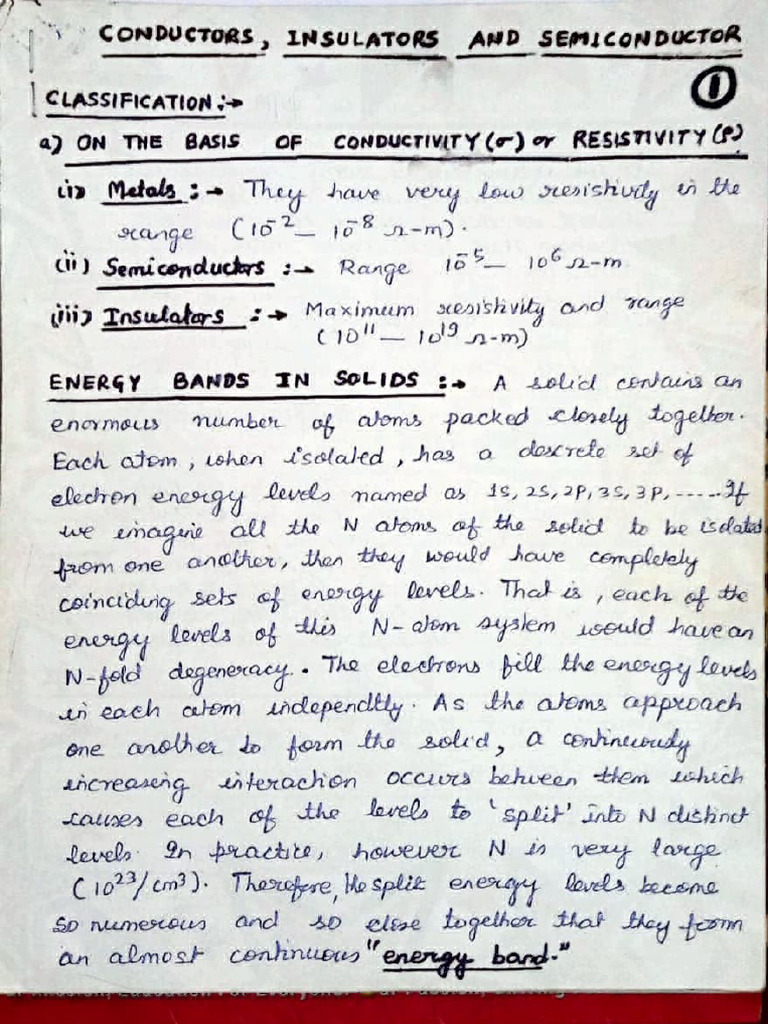 CONDUCTORS, INSULATORS AND SEMICONDUCTOR
1
CLASSIFICATION :→
a) ON THE BASIS OF CONDUCTIVITY (σ) or RESISTIVITY (ρ)
(i) Metals :→ They have very low resistivity in the
range (10⁻² — 10⁻⁸ Ω-m).
(ii) Semiconductors :→ Range 10⁻⁵ — 10⁶ Ω-m
(iii) Insulators :→ Maximum resistivity and range
(10¹¹ — 10¹⁹ Ω-m)
ENERGY BANDS IN SOLIDS :→ A solid contains an
enormous number of atoms packed closely together.
Each atom, when isolated, has a descrete set of
electron energy levels named as 1S, 2S, 2P, 3S, 3P, ------ If
we imagine all the N atoms of the solid to be isolated
from one another, then they would have completely
coinciding sets of energy levels. That is, each of the
energy levels of this N-atom system would have an
N-fold degeneracy. The electrons fill the energy levels
in each atom independtly. As the atoms approach
one another to form the solid, a continuously
increasing interaction occurs between them which
causes each of the levels to 'split' into N distinct
levels. In practice, however N is very large
(10²³/cm³). Therefore, the split energy levels become
so numerous and so close together that they form
an almost continuous "energy band."